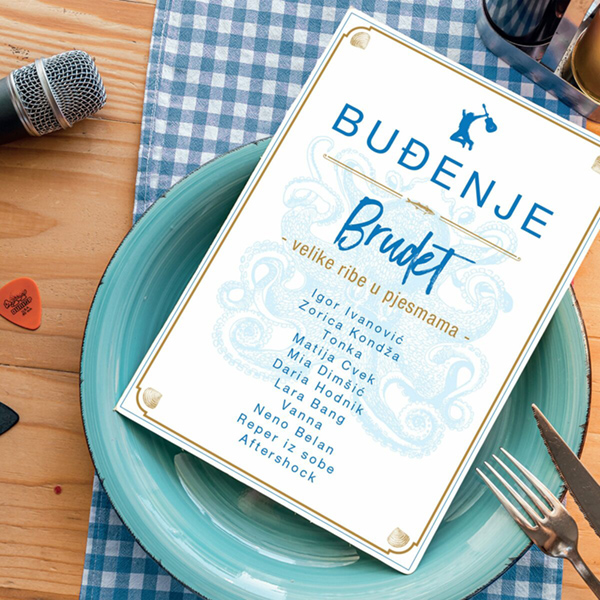 BUĐENJE
Brudet
- velike ribe u pjesmama -
Igor Ivanović
Zorica Kondža
Tonka
Matija Cvek
Mia Dimšić
Daria Hodnik
Lara Bang
Vanna
Neno Belan
Reper iz sobe
Aftershock